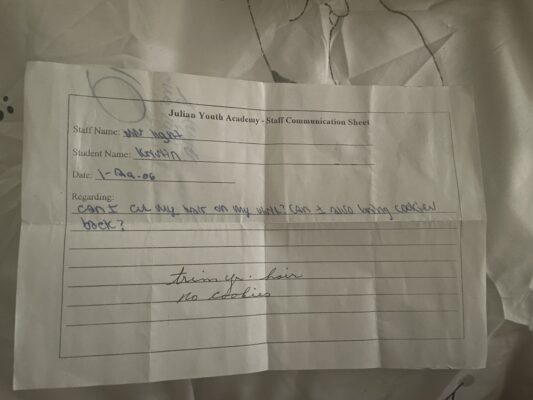 Julian Youth Academy - Staff Communication Sheet
Staff Name: Mr light
Student Name: Kristin
Date: 1-29-06
Regarding:
can I cut my hair on my visit? Can I also bring cookies
back?
trim yr. hair
no cookies